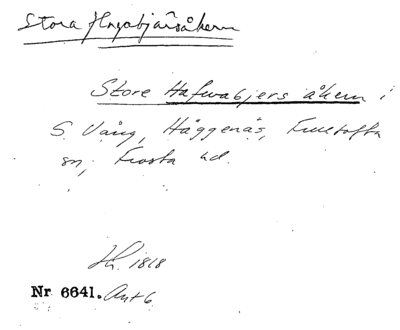 Stora Hagabjärsåkern
Store Hafwabjers åkern i
S. Vång, Häggenäs, Fulltofta
sn, Frosta hd.
H. 1818
Nr 6641. Akt 6